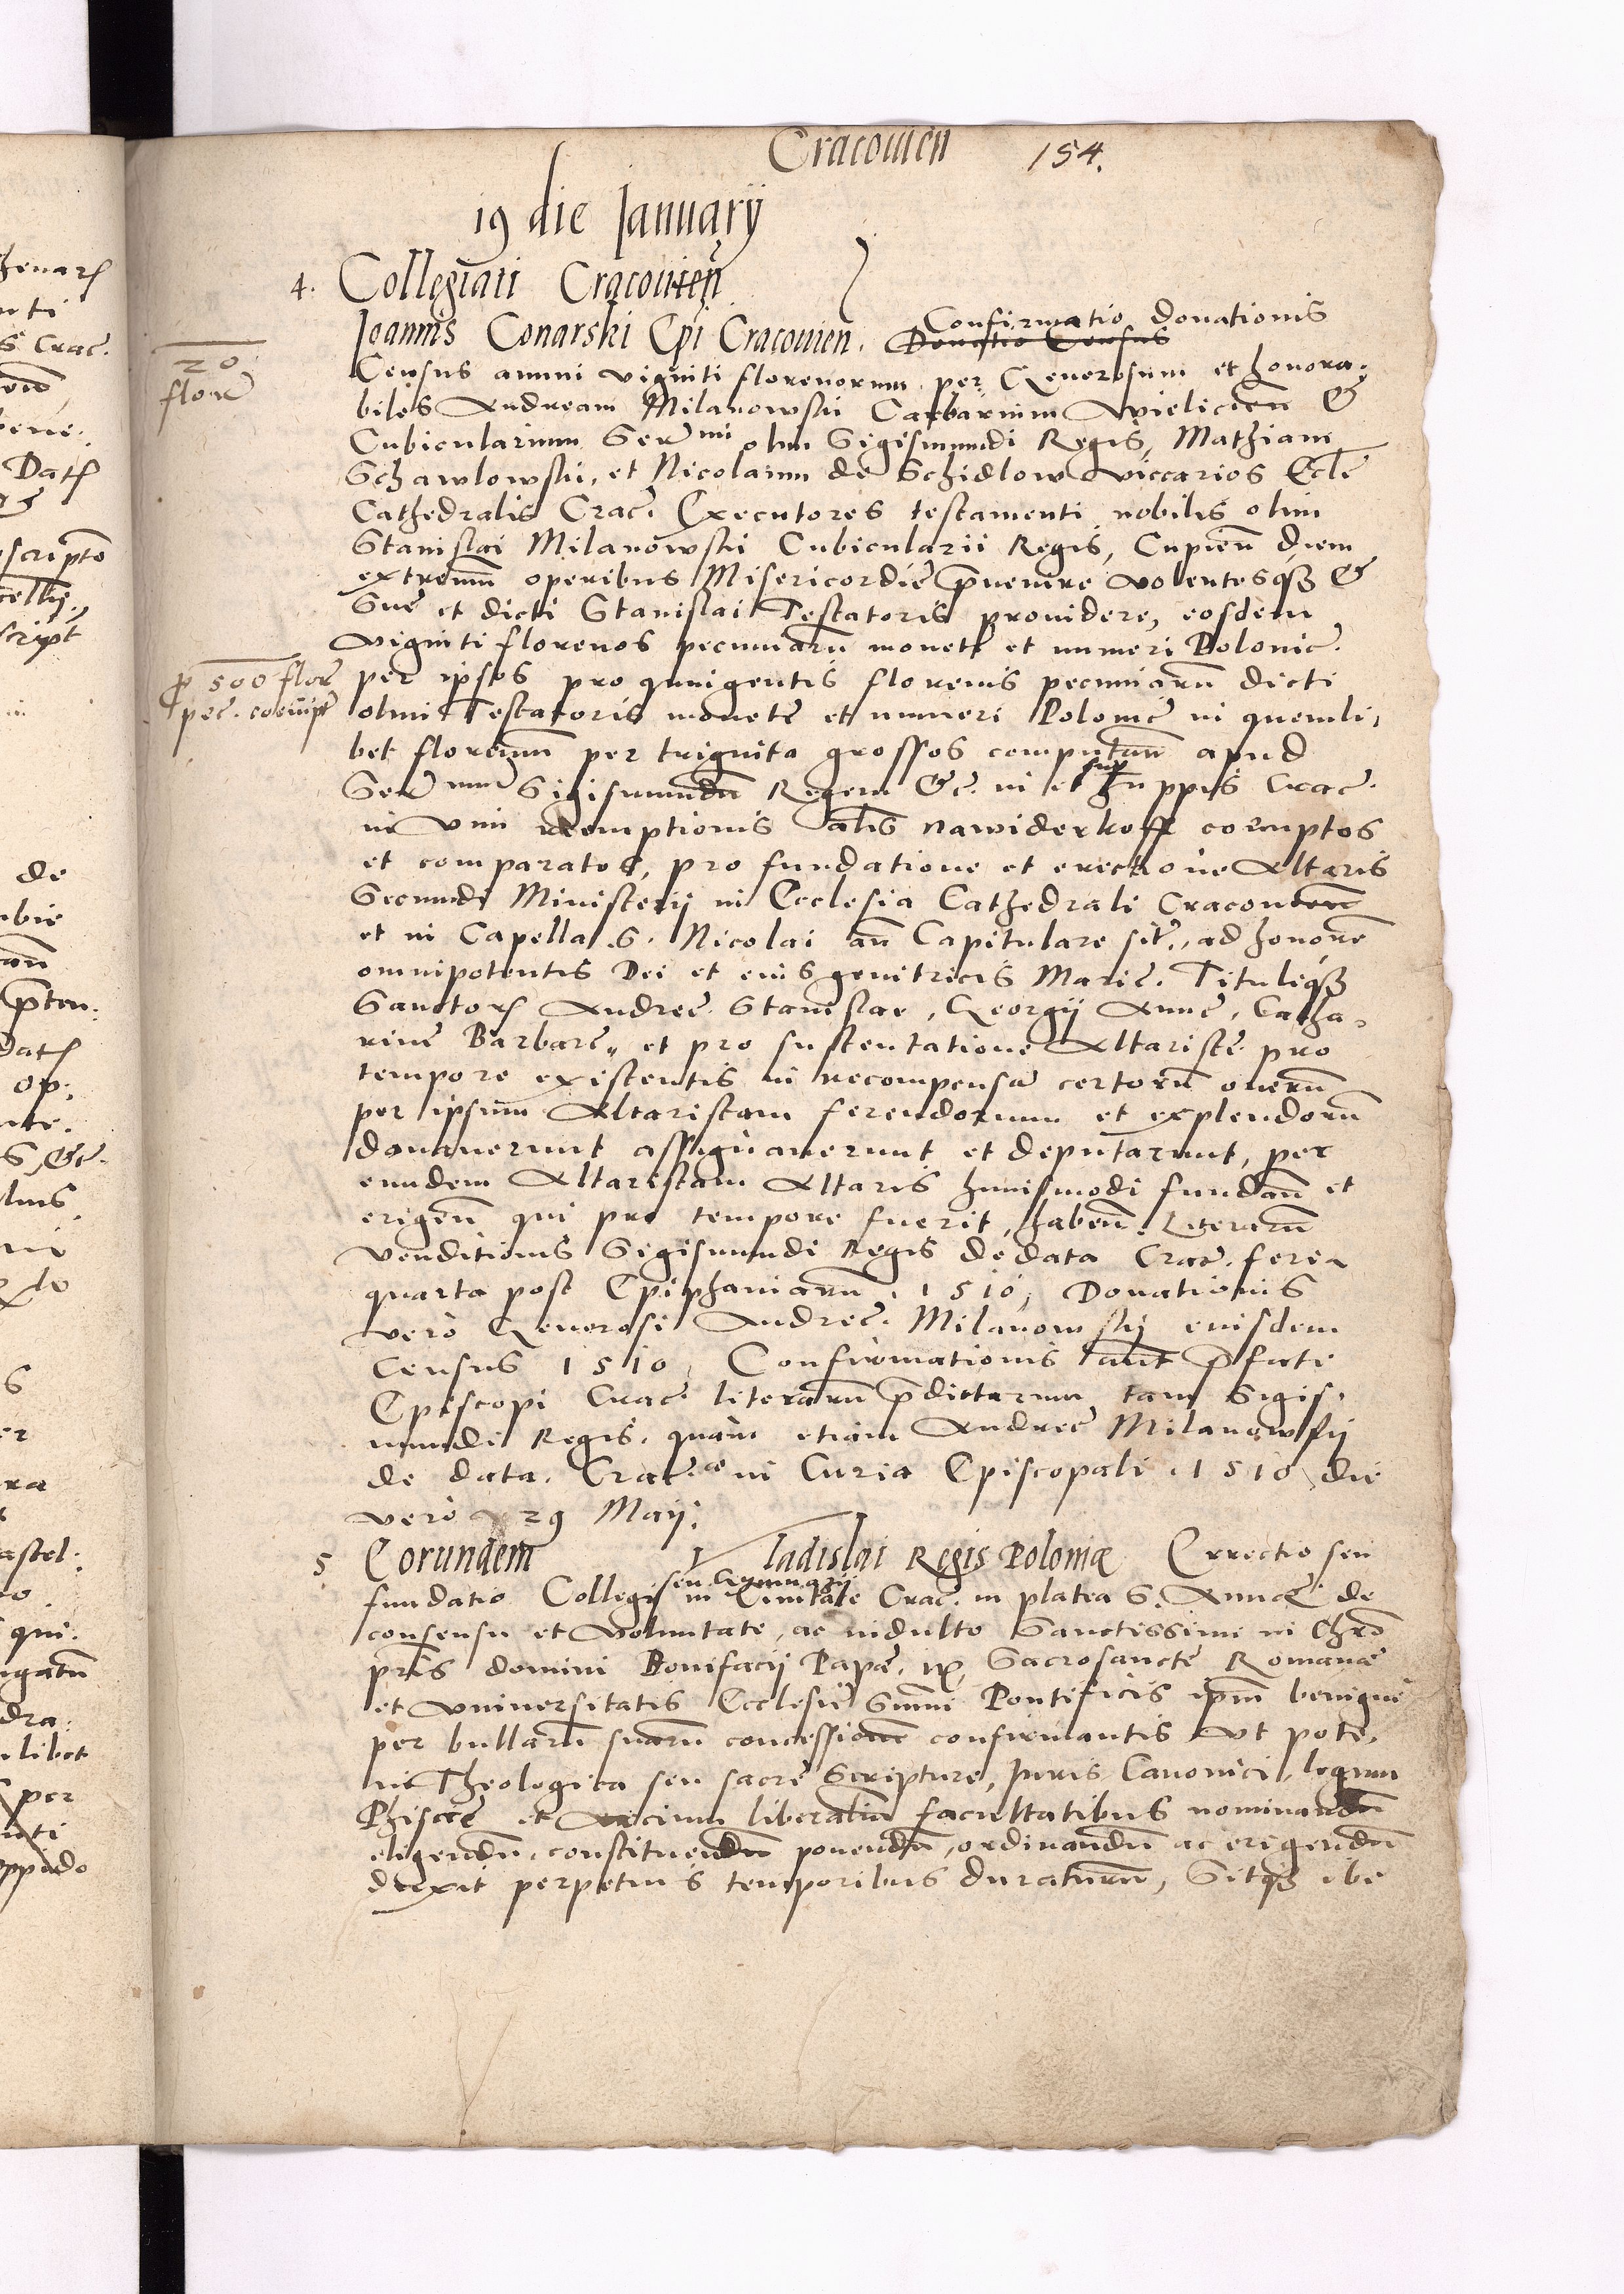 Cracouien 154.
19 die Januarÿ
4. Collegiati Cracouien̄
Joannis Conarski Ep̄i Cracouien. Confirmatio donationis
Donatio Census
20 florꝭ
Census annui viginti florenorum per Generosum et honora:
biles Andream Milanowski Carbarium Wielicien̄ &
Cubicularium Serꝭmi olim Sigismundi Regis, Mathiam
Schawlowski, et Nicolaum de Schidlow viccarios Eccl̄e
Cathedralis Crac. Executores testamenti nobilis olim
Stanislai Milanowski Cubicularii Regis, Cupien̄ diem
extremū operibus Misericordie p̄uenire volentesqꝫ &
Sue et dicti Stanislai Testatoris prouidere, eosdem
viginti florenos pecuniarū monete et numeri Polonic.
p̄ 500 florꝭ pec. coempt
per ipsos pro quingentis florenis pecuniarū dicti
olim Testatoris monete et numeri Polonice in quemli,
bet florenum per triginta grossos computan̄ apud
Serꝭmum Sigismundū Regem &c. in et sup Zuppis Crac.
in vim reemptionis al̄s nawiderkoff coemptos
et comparatos, pro fundatione et erectione Altaris
Secundi Ministerij in Ecclesia Cathedrali Cracouien̄
et in Capella S. Nicolai an̄ Capitulare sit., ad honorē
omnipotentis Dei et eius genitricis Marie. Tituliqꝫ
Sanctorꝭ Andree Stanislai, Georgij Anne, Catha-
rine Barbare, et pro sustentatione Altariste pro
tempore existentis in recompensā certorū onerū
per ipsum Altaristam ferendorum et explendorū
donauerunt assignauerunt et deputarunt, per
eundem Altaristam Altaris huiusmodi fundan̄ et
erigen̄ qui pro tempore fuerit, haben̄. Literarū
venditionis Sigismundi Regis de data Crac. feria
quarta post Epiphaniarū. 1510, Donationis
vero Generosi Andree Milanowskij eiusdem
Census 1510, Confirmationis aut̄ p̄fati
Episcopi Crac. literarū p̄dictarum tam Sigis,
mundi Regis, quam etiam Andree Milanowsij
de data. Crac.æ in Curia Episcopali. 1510 die
vero 29 Maij.
5 Eorundem Vladislai Regis Poloniæ Errectio seu
fundatio Collegij seu Gymnazij in Ciuitate Crac. in platea S. Annæ de
consensu et voluntate, ac indulto Sanctissimi in Chr̄o
pr̄is domini Bonifacij Papæ ix Sacrosancte Romanæ
et vniuersitatis Ecclesie Sum̄i Pontificis ip̄m benigne
per bullarū suarū concessionē confirmantis vt pote,
in Theologica seu sacre Scripture, Juris Canonici, legum
Phisice et Artium liberaliū facultatibus nominandū
eligendū, constituendū ponendū, ordinandū ac erigendū
duxit perpetuis temporibus duraturū, Sitqꝫ ibi